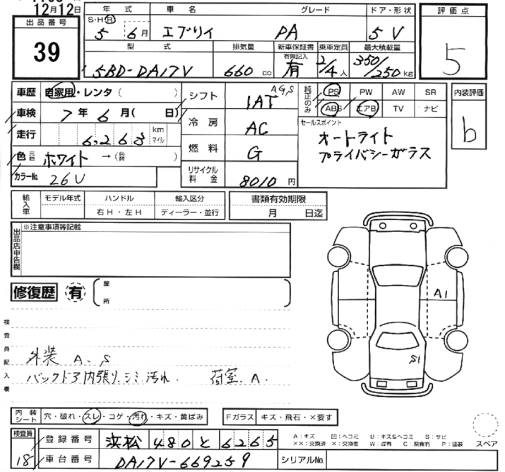 12月12日
出品番号
39
年式 車名 グレード ドア・形状
S・H・R 5年 6月 エブリイ PA 5 V
型式 排気量 新車保証書 有償記入 乗車定員 最大積載量
5BD-DA17V 660cc 有 2/4人 350/250kg
評価点
5
車歴 自家用・レンタ( )
車検 7年 6月( 日)
走行 6,263 km マイル
色 元色 ホワイト→色替( )
カラーNo. 26U
シフト IAT AGS
冷房 AC
燃料 G
リサイクル料金 8010円
純正のみ
PS PW AW SR
ABS エアB TV ナビ
セールスポイント
オートライト
プライバシーガラス
内装評価
b
輸入車 モデル年式 ハンドル 輸入区分
右H・左H ディーラー・並行
書類有効期限
月 日迄
出品店申告欄
※注意事項等記載
修復歴 有
箇所
検査員記入欄
外装 A、S
バックドア内張りシミ汚れ、 荷室 A、
A1
S1
内装シート 穴・破れ・スレ・コゲ・汚れ・キズ・黄ばみ
Fガラス キズ・飛石・×要す
スペア
検査員
18
登録番号 浜松 480 と 6265
車台番号 DA17V-669259
シリアルNo.